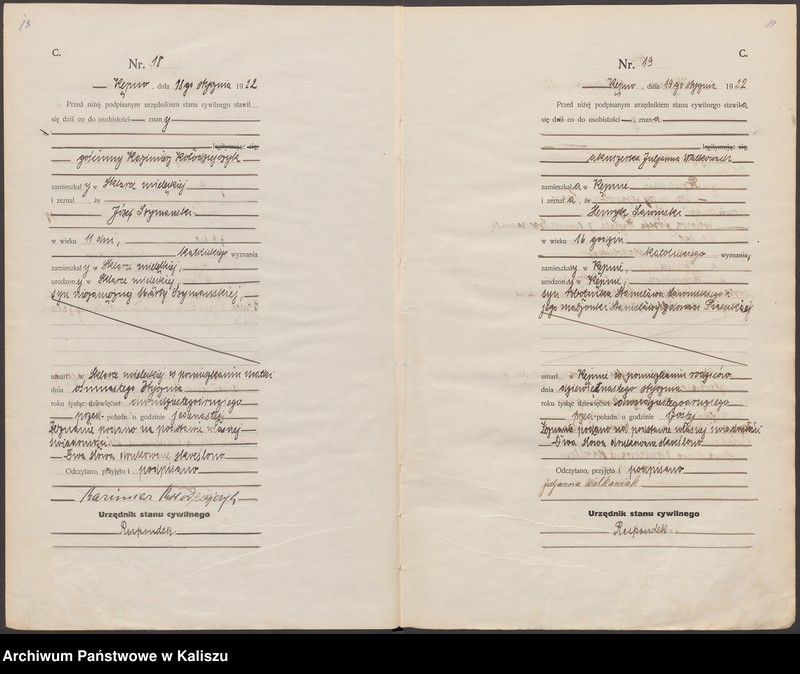 18
C.
Nr. 18
Kępno, dnia 18go stycznia 1922
Przed niżej podpisanym urzędnikiem stanu cywilnego stawił
się dziś co do osobistości znany
legitymując się,
gościnny Kazimierz Kołodziejczyk
zamieszkały w Sklarce mieleckiej
i zeznał, że
Józef Szymanski
w wieku 11 dni,
katolickiego wyznania
zamieszkały w Sklarce mieleckiej,
urodzony w Sklarce mieleckiej,
syn niezamężnej Marty Szymanskiej,
umarł w Sklarce mieleckiej w pomieszkaniu matki
dnia osmnastego stycznia
roku tysiąc dziewięćset dwudziestegodrugiego
przed połudn. o godzinie jedenastej
Zeznanie podano na podstawie własnej
świadomości
Dwa słowa drukowane skreślono
Odczytano, przyjęto i podpisano
Kazimierz Kołodziejczyk
Urzędnik stanu cywilnego
Respondek.
C.
Nr. 19
Kępno, dnia 19go stycznia 1922
Przed niżej podpisanym urzędnikiem stanu cywilnego stawiła
się dziś co do osobistości znana
legitymując się,
akuszerka Juljanna
zamieszkała w Kępnie
i zeznała, że
Henryk Sawinski
w wieku 16 godzin
katolickiego wyznania,
zamieszkały w Kępnie,
urodzony w Kępnie,
syn robotnika Stanisława Sawinskiego i
jego małżonki Stanisławy z domu
umarł w Kępnie w pomieszkaniu rodziców
dnia dziewiętnastego stycznia
roku tysiąc dziewięćset dwudziestegodrugiego
przed połudn. o godzinie
Zeznanie podano na podstawie własnej świadomości
Dwa słowa drukowane skreślono
Odczytano, przyjęto i podpisano
Juljanna
Urzędnik stanu cywilnego
Respondek.
Archiwum Państwowe w Kaliszu